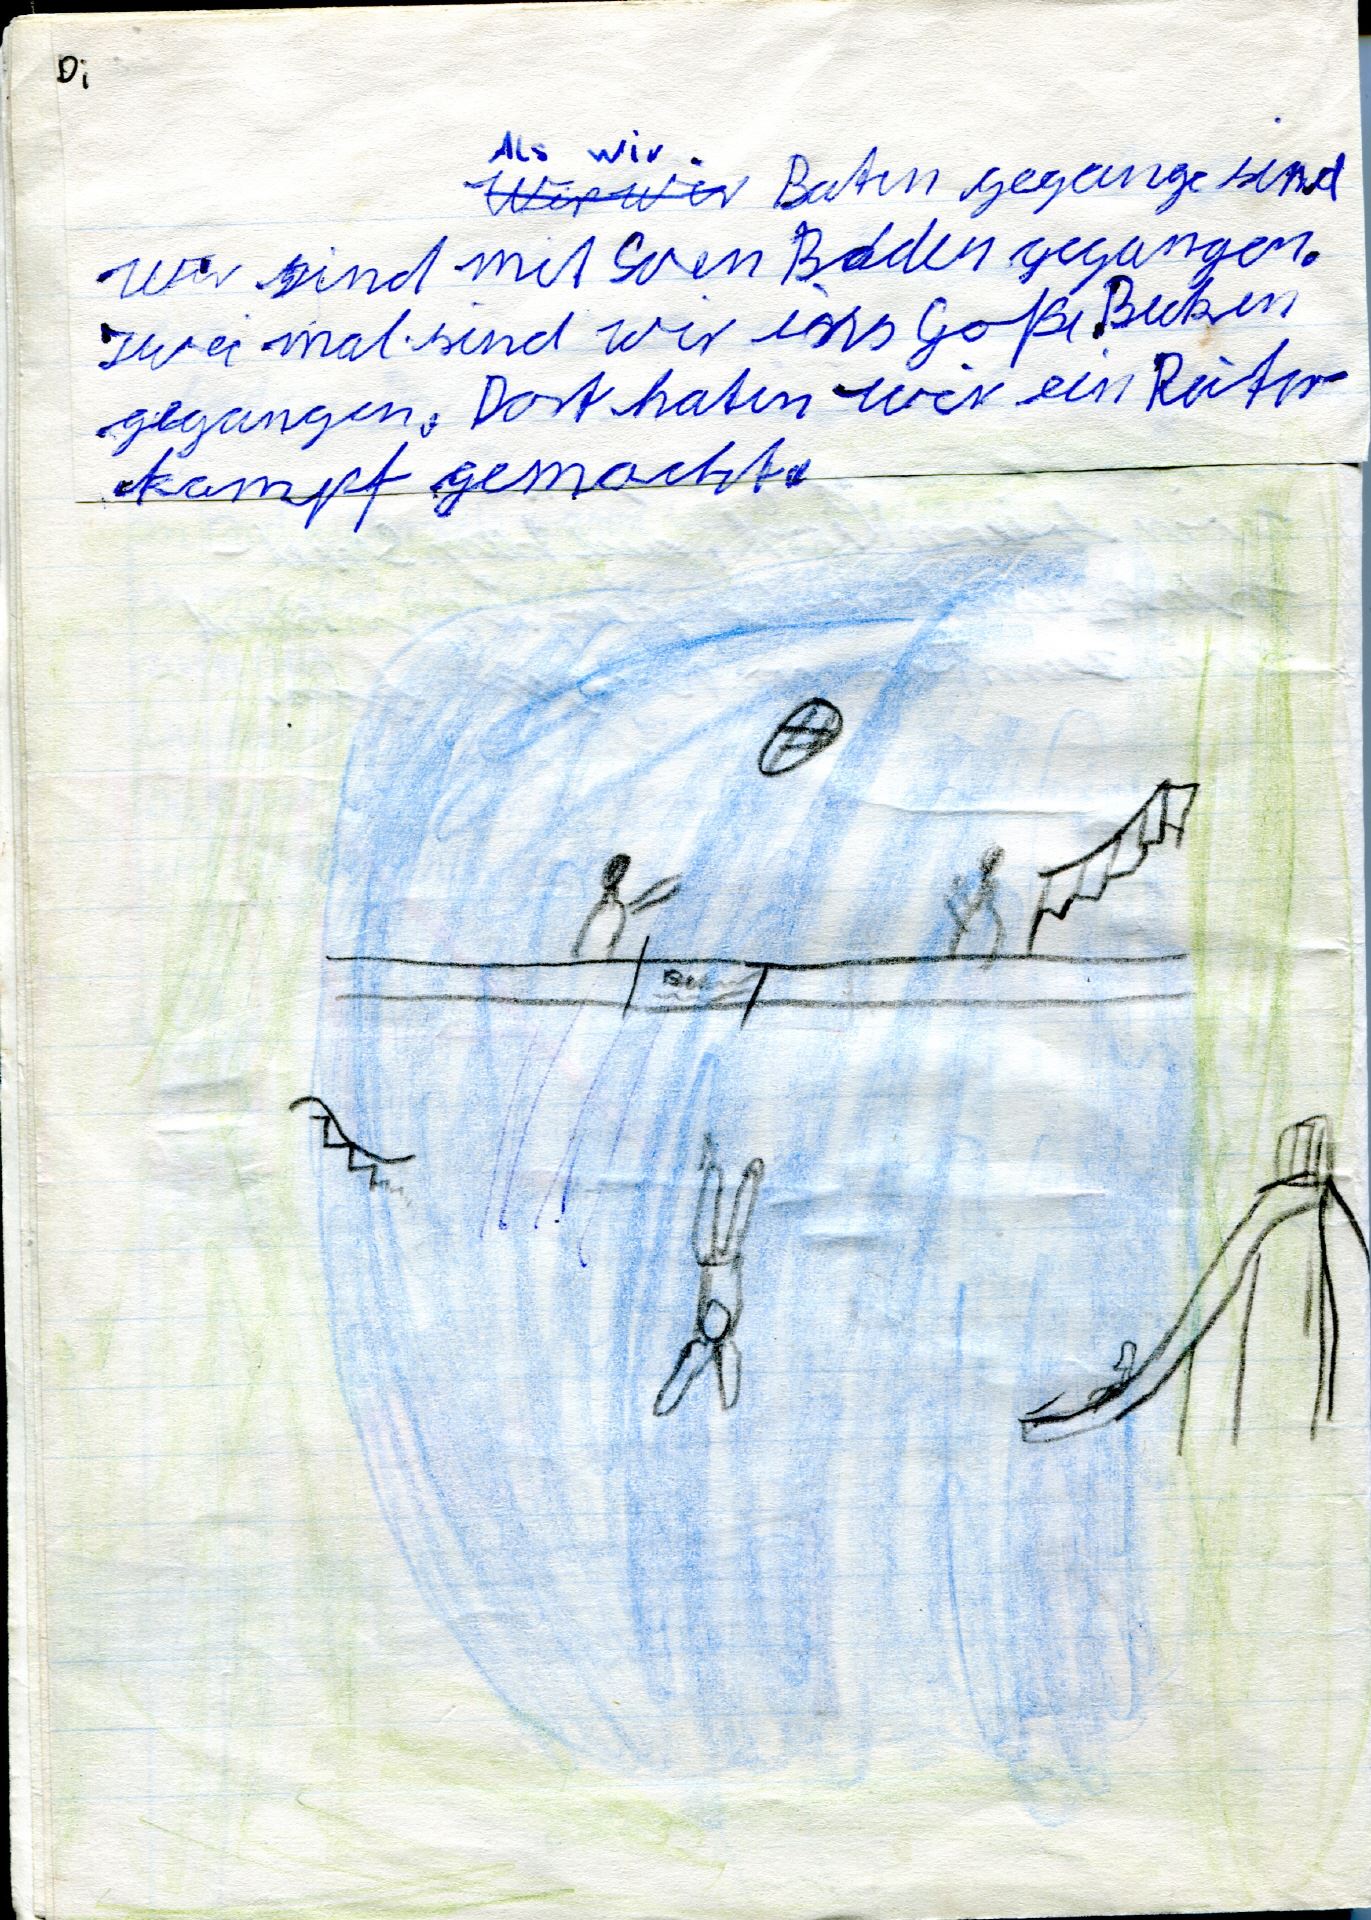 Di
Als wir
Wir wir Baten gegange sind
wir sind mit Sven Baden gegangen.
zwei mal sind wir ins Goße Beken
gegangen. Dort haten wir ein Reiter
kampf gemacht.